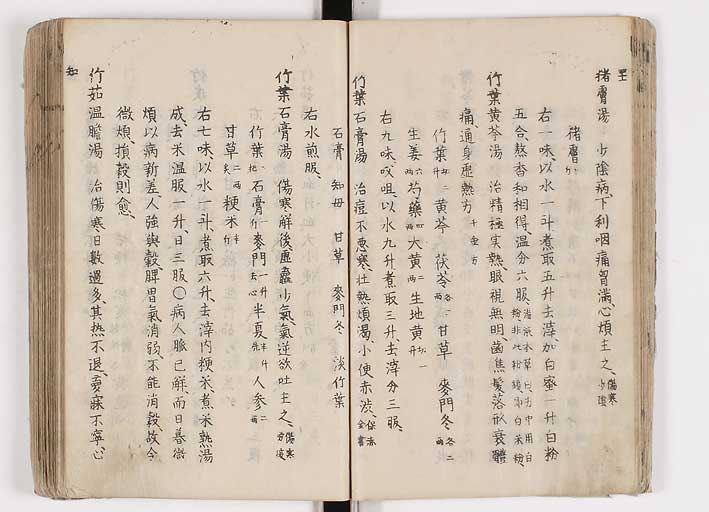 猪膚湯 少陰病下利咽痛胸滿心煩主之 傷寒 少陰
猪膚 一斤
右一味以水一斗煮取五升去滓加白蜜一升白粉
五合熬香和相得溫分六服
竹葉黄芩湯 治精極実熱眼視無明齒焦髮落形衰體
痛通身虚熱方 千金方
竹葉 黄芩 茯苓 甘草 麥門冬
生姜 芍藥 大黄 生地黄
右九味㕮咀以水九升煮取三升去滓分三服
竹葉石膏湯 治痘不悪寒壮熱煩渇小便赤渋 保赤全書
石膏 知母 甘草 麥門冬 淡竹葉
右水煎服
竹葉石膏湯 傷寒解後虚羸少氣氣逆欲吐主之
竹葉 二把 石膏 一斤 麥門 一升去心 半夏 半升洗 人参 二両
甘草 二両炙 粳米 半升
右七味以水一斗煮取六升去滓内粳米煮米熟湯
成去米温服一升日三服〇病人脈已解而日暮微
煩以病新差人強與穀脾胃氣消弱不能消穀故令
微煩損穀則愈
竹茹温膽湯 治傷寒日數過多其熱不退夢寐不寧心
知